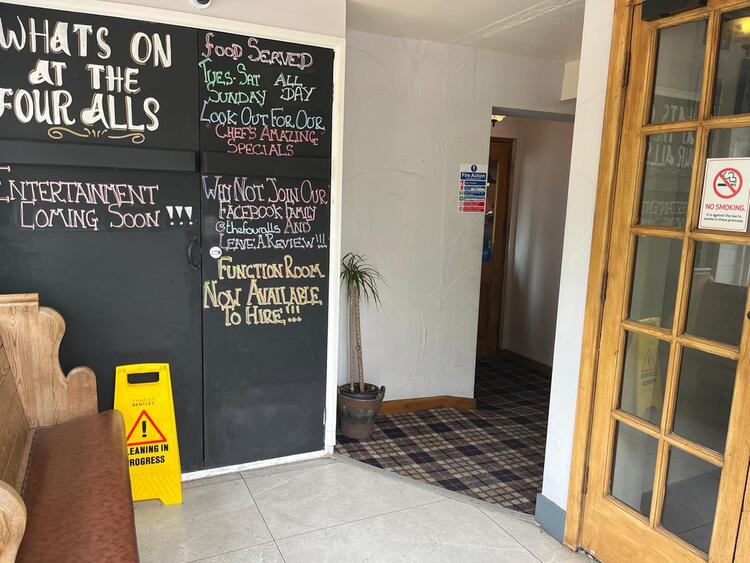 WHATS ON
AT THE
FOUR ALLS
ENTERTAINMENT
COMING SOON !!!
FOOD SERVED
TUES-SAT
SUNDAY
ALL
DAY
LOOK OUT FOR OUR
"CHEF'S AMAZING
SPECIALS
WHY NOT JOIN OUR
FACEBOOK FAMILY
@thefouralls AND
LEAVE A REVIEW!!!
FUNCTION ROOM
NOW AVAILABLE
TO HIRE!!!
CHARLES
BENTLEY
LEANING IN
ROGRESS
Fire Action
NO SMOKING.
It is against the law to
smoke in these premises